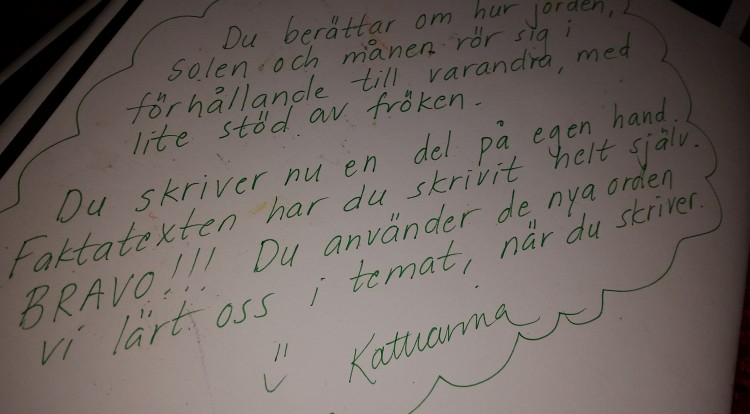 Du berättar om hur jorden,
solen och månen rör sig i
förhållande till varandra, med
lite stöd av fröken.
Du skriver nu en del på egen hand.
Faktatexten har du skrivit helt själv.
BRAVO!!! Du använder de nya orden
vi lärt oss i temat, när du skriver.
Katharina